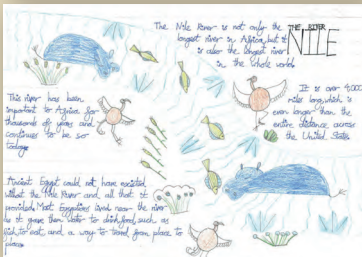 THE RIVER
NILE
The Nile River is not only the
longest river in Africa, but it
is also the longest river
in the whole world
It is over 4,000
miles long, which is
even longer than the
entire distance across
the United States.
This river has been
important to Africa for
thousands of years and
continues to be so
today.
Ancient Egypt could not have existed
without the Nile River and all that it
provided. Most Egyptians lived near the river
as it gave them water to drink, food, such as
fish to eat, and a way to travel from place to
place